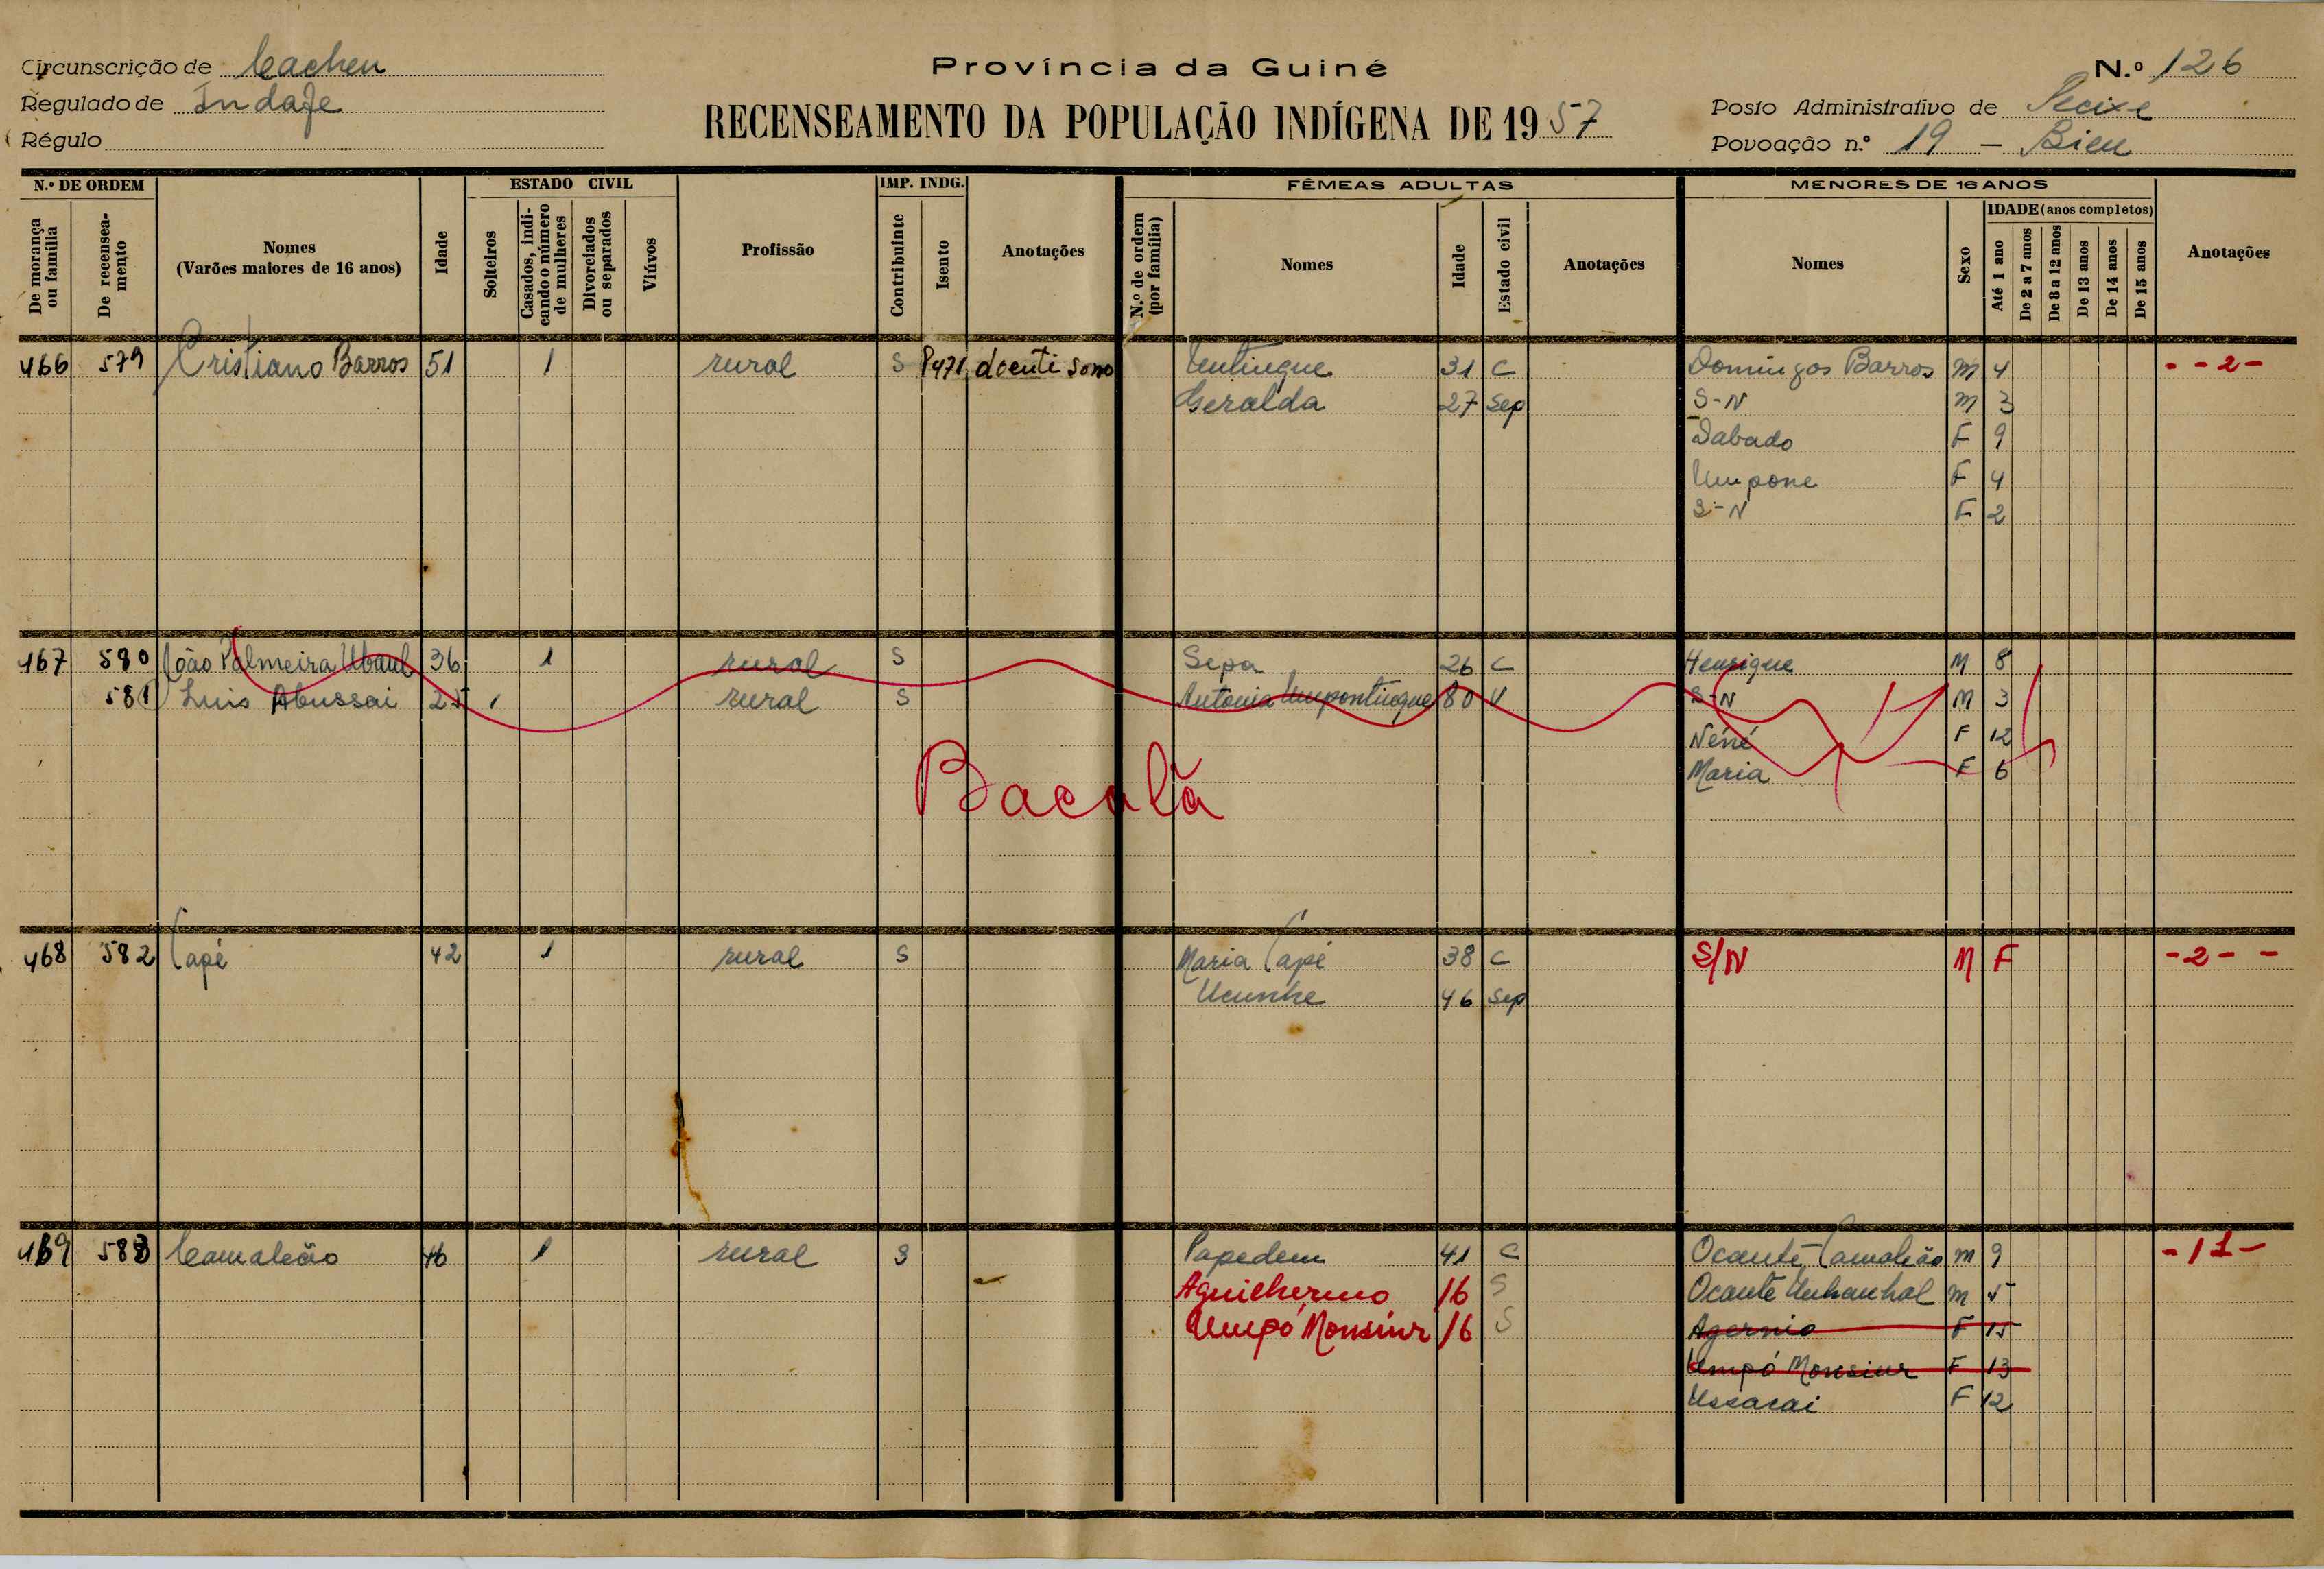 Circunscrição de Cacheu
Regulado de Indafe
Régulo
Província da Guiné
RECENSEAMENTO DA POPULAÇÃO INDÍGENA DE 1957
N.º 126
Posto Administrativo de Pecixe
Povoação n.º 19 - Bieu
N.º DE ORDEM
De morança ou família
De recenseamento
Nomes
(Varões maiores de 16 anos)
Idade
ESTADO CIVIL
Solteiros
Casados, indicando o número de mulheres
Divorciados ou separados
Viúvos
Profissão
IMP. INDG.
Contribuinte
Isento
Anotações
FÊMEAS ADULTAS
N.º de ordem (por família)
Nomes
Idade
Estado civil
Anotações
MENORES DE 16 ANOS
Nomes
Sexo
IDADE (anos completos)
Até 1 ano
De 2 a 7 anos
De 8 a 12 anos
De 13 anos
De 14 anos
De 15 anos
Anotações
466 579 Cristiano Barros 51 1 rural S P471 doenti sono 31 C Domingos Barros M 4 - - 2 -
Geralda 27 Sep S-N M 3
Sabado F 9
Umpone F 4
S-N F 2
467 580 João Palmeira Ubaul 36 1 rural S Sepa 26 C Henrique M 8
581 Luis Abussai 25 1 rural S Antonia Umpontinque 80 V S-N M 3
Nené F 12
Maria F 6
Bacalã
468 582 Capé 42 1 rural S Maria Capé 38 C S/N M F - 2 - -
Ucunhe 46 Sep
469 583 Camaleão 46 1 rural S Papedem 41 C Ocante Camaleão M 9 - 1 1 -
Aguilhermo 16 S Ocante Unhanhal M 5
Umpó Monsiur 16 S Agernio F 15
Umpó Monsiur F 13
Ussacai F 12